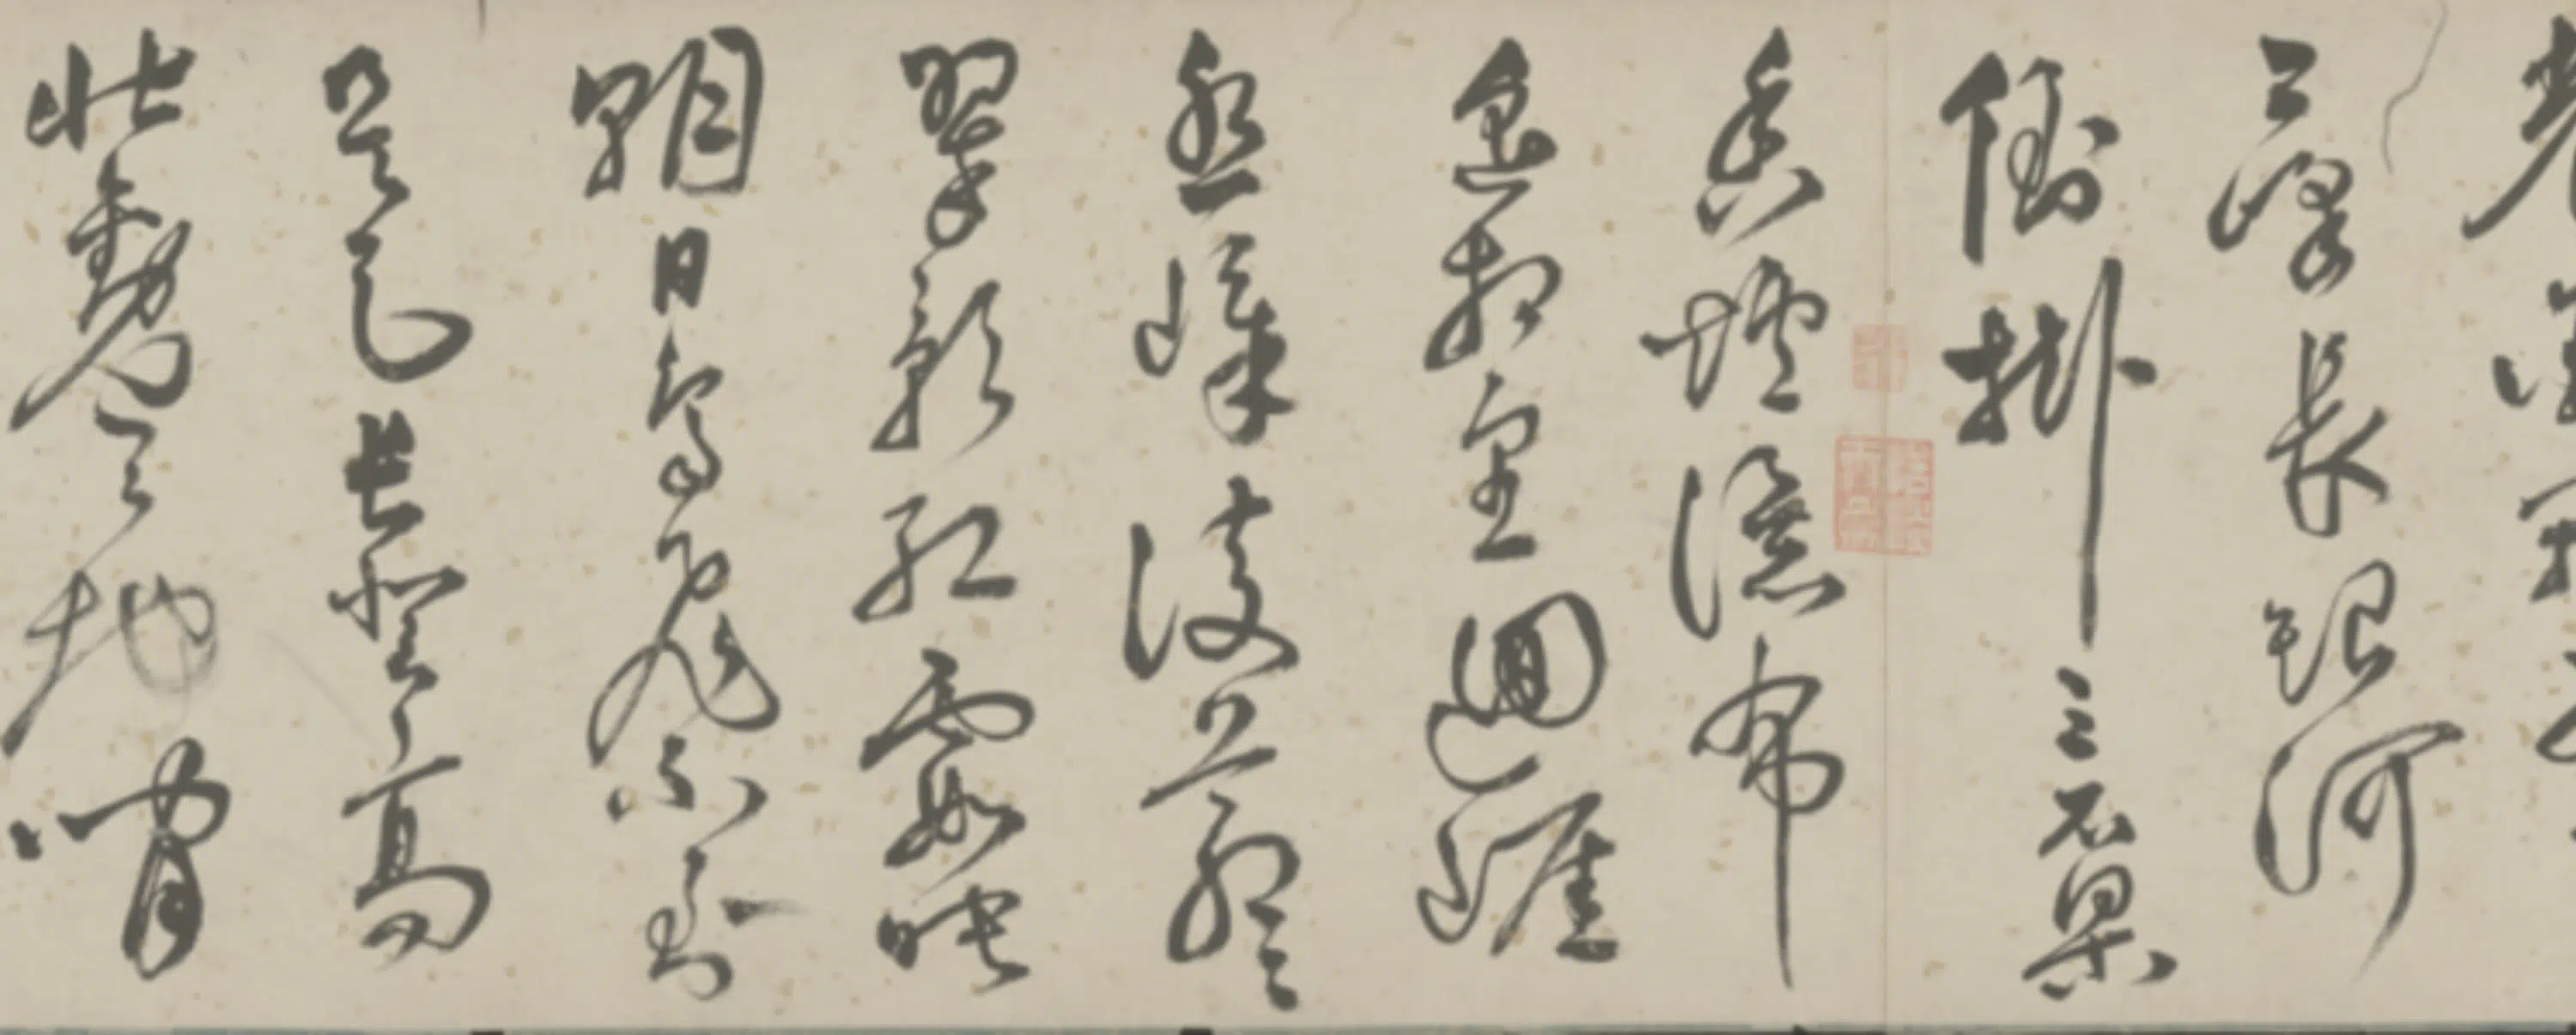 二峰長銀河
倒掛三石梁
香爐瀑布
遙相望迴崖
沓嶂凌蒼〻
翠影紅霞映
朝日鳥飛不到
吳天長登高
壯觀天地間